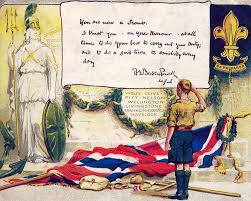 You are now a Scout.
I trust you - on your Honour - at all
times to do your best to carry out your Duty,
and to do a good turn to somebody every
day
BE PREPARED
WOLFE CLIVE
PITT NELSON
WELLINGTON
LIVINGSTONE
FRANKLIN GORDON
HAVELOCK